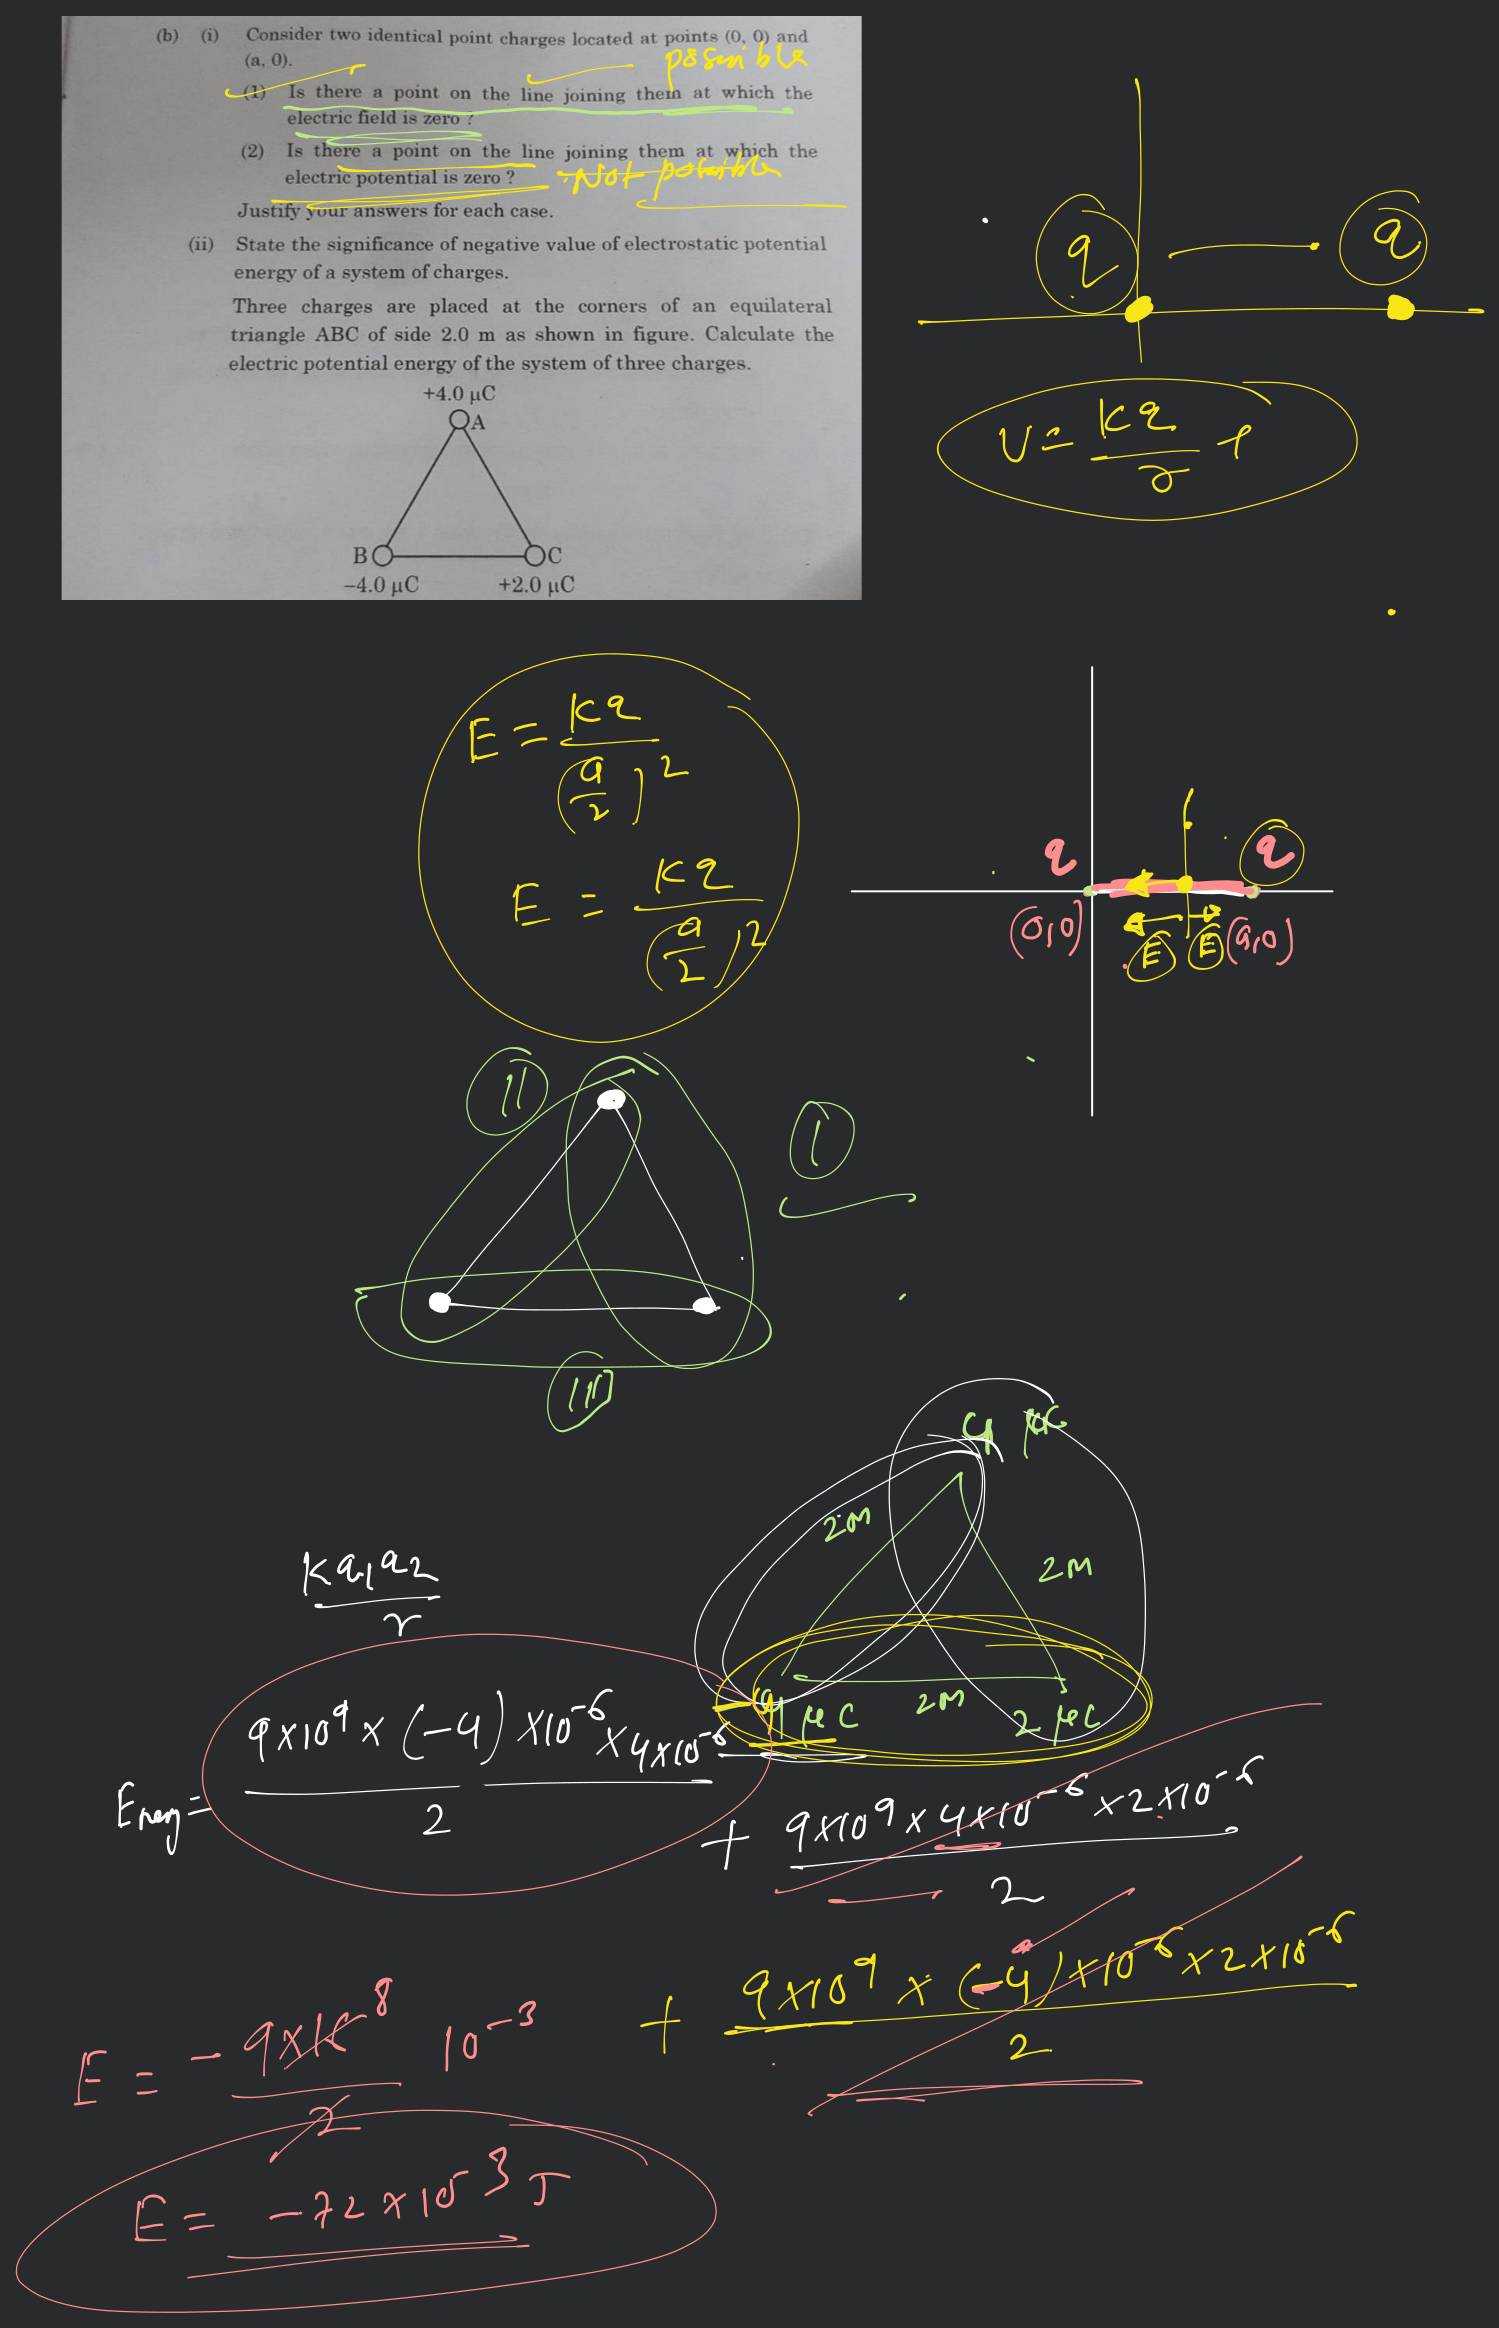 (b) (i) Consider two identical point charges located at points (0, 0) and
(a, 0).
possible
(1) Is there a point on the line joining them at which the
electric field is zero ?
(2) Is there a point on the line joining them at which the
electric potential is zero ?
Not possible
Justify your answers for each case.
(ii) State the significance of negative value of electrostatic potential
energy of a system of charges.
Three charges are placed at the corners of an equilateral
triangle ABC of side 2.0 m as shown in figure. Calculate the
electric potential energy of the system of three charges.
+4.0 µC
A
B C
−4.0 µC +2.0 µC
q q
V = Kq/r +
E = Kq/(a/2)^2
E = Kq/(a/2)^2
q q
(0,0) E E (a,0)
II
I
III
4 µC
2m
2m
-4 µC 2m 2 µC
Kq1q2/r
Energy = 9×10^9 × (-4) ×10^-6 × 4×10^-6 / 2
+ 9×10^9 × 4×10^-6 × 2×10^-6 / 2
+ 9×10^9 × (-4) ×10^-6 × 2×10^-6 / 2
E = - 9×16 8 / 2 10^-3
E = -72 × 10^-3 J